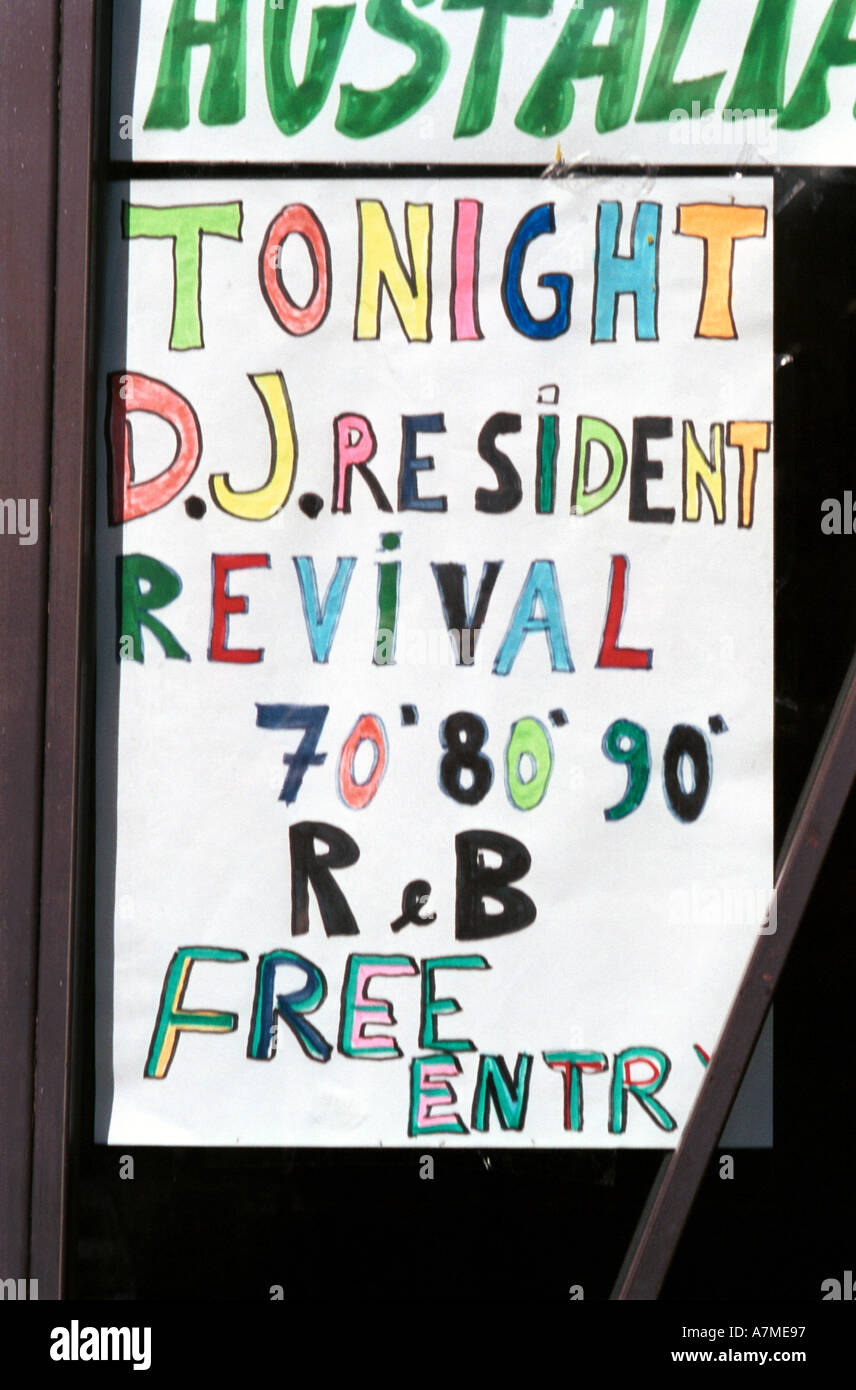 TONIGHT
D.J. RESIDENT
REVIVAL
70' 80' 90'
R e B
FREE
ENTRY
alamy stock photo
A7ME97
www.alamy.com